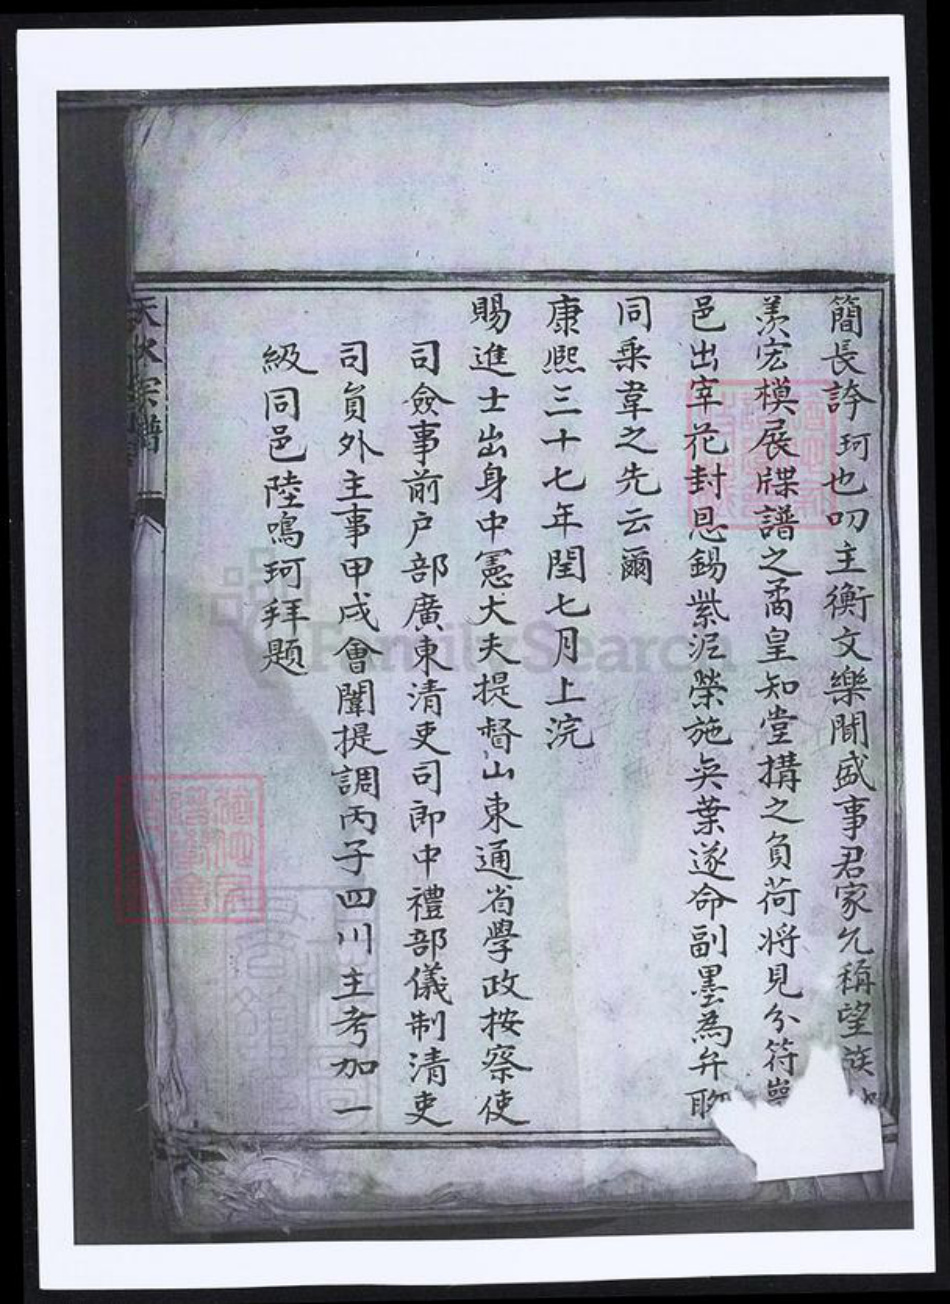 簡長誇珂也叨主衡文樂聞盛事君家允稱望族
羨宏模展牒譜之矞皇知堂搆之負荷将見分符
邑出宰花封恩錫紫泥榮施奕葉遂命副墨為弁聊
同乗韋之先云爾
康熙三十七年閏七月上浣
賜進士出身中憲大夫提督山東通省學政按察使
司僉事前户部廣東清吏司郎中禮部儀制清吏
司員外主事甲戌會闈提調丙子四川主考加一
級同邑陸鳴珂拜題
天水宗譜
FamilySearch